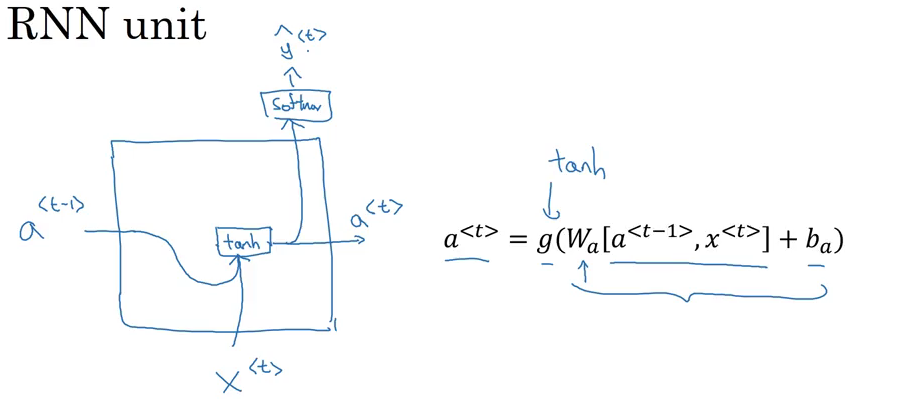 RNN unit
ŷ^{<t>}
softmax
a^{<t-1>}
tanh
a^{<t>}
x^{<t>}
tanh
a^{<t>} = g(W_a[a^{<t-1>}, x^{<t>}] + b_a)